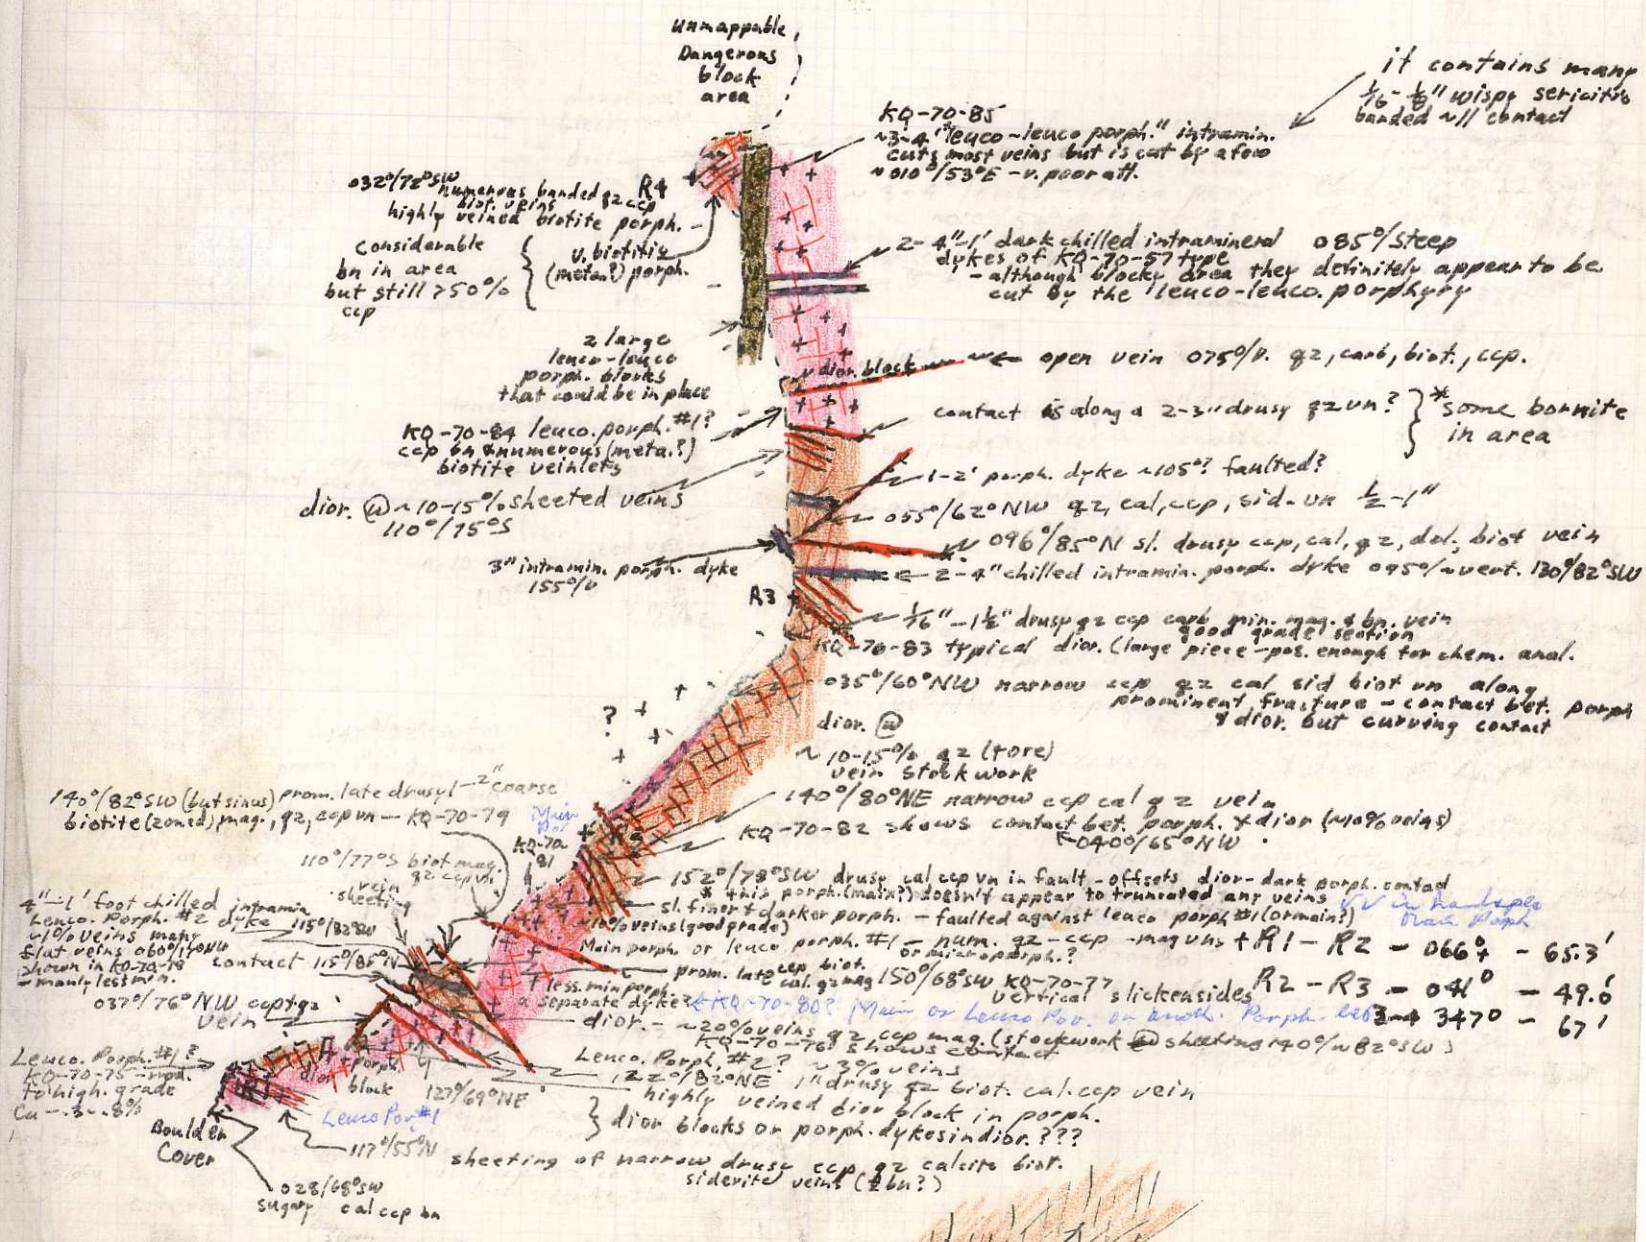 Unmappable,
Dangerous
block
area
it contains many
1/16 - 1/8" wispy sericitic
banded ~// contact
KQ-70-85
~3-4' "leuco-leuco porph." intramin.
cuts most veins but is cut by a few
~010°/53°E - v. poor att.
032°/72°SW
numerous banded qz ccp
biot. veins
R4
highly veined biotite porph. -
considerable
bn in area
but still >50%
ccp
v. biotitic
(meta?) porph.
2- 4"-1' dark chilled intramineral 085°/Steep
dykes of KQ-70-57 type
- although blocky area they definitely appear to be
cut by the "leuco-leuco. porphyry
2 large
leuco-leuco
porph. blocks
that could be in place
dior. block
open vein 075°/v. qz, carb, biot., ccp.
contact is along a 2-3" drusy qz vn?
*some bornite
in area
KQ-70-84 leuco. porph. #1?
ccp bn & numerous (meta.?)
biotite veinlets
1-2' porph. dyke ~105°? faulted?
dior. @ ~10-15% sheeted veins
110°/75°S
055°/62°NW qz, cal, ccp, sid- vn 1/2-1"
096°/85°N sl. drusy ccp, cal, qz, dol., biot vein
3" intramin. porph. dyke
155°/v
2-4" chilled intramin. porph. dyke 095°/~vert. 130°/82°SW
R3
1/16"-1½" drusy qz ccp carb min. mag. & bn. vein
good grade section
KQ-70-83 typical dior. (large piece - pos. enough for chem. anal.
035°/60°NW narrow ccp qz cal sid biot vn along
prominent fracture - contact bet. porph
& dior. but curving contact
?
dior. @
~ 10-15% qz (± ore)
vein stockwork
140°/82°SW (but sinus) prom. late drusy 1-2" coarse
biotite (zoned) mag., qz, ccp vn - KQ-70-79
140°/80°NE narrow ccp cal qz vein
Main
Por
KQ-70
81
KQ-70-82 shows contact bet. porph. & dior (~10% veins)
040°/65°NW
110°/77°S biot mag
qz ccp vn.
vein
sheeting
152°/78°SW drusy cal ccp vn in fault - offsets dior - dark porph. contact
* this porph. (main?) doesn't appear to truncated any veins
sl. finer & darker porph. - faulted against leuco porph #1 (or main?)
Main Porph
4"-1' foot chilled intramin
Leuco. Porph. #2 dyke
~1% veins many
flat veins
shown in KQ-70-78
- manly less min.
115°/82°SW
contact 115°/85°N
~10% veins (good grade)
Main porph. or leuco porph. #1 - num. qz-ccp-mag vns
or micro porph.?
+ R1 - R2 - 066° - 65.3'
prom. late ccp biot.
cal. qz mag 150°/68°SW KQ-70-77
vertical slickensides
R2 - R3 - 041° - 49.6'
less min porph.
a separate dyke?
KQ-70-80? Main or Leuco Por. or anoth. Porph.
3-4 347° - 67'
037°/76°NW ccp + qz
vein
dior. - ~20% veins qz ccp mag. (stockwork @ sheeting 140°/~82°SW)
KQ-70-76 shows contact
Leuco. Porph. #1?
KQ-70-75 - mod.
to high. grade
Cu - .3 - .8%
Leuco. Porph. #2? ~3% veins
122°/82°NE 1" drusy qz biot. cal. ccp vein
highly veined dior block in porph.
porph
dior
block
R1
127°/69°NE
dior blocks or porph. dykes in dior. ???
Leuco Por #1
Boulder
Cover
117°/55°N sheeting of narrow drusy ccp qz calcite biot.
siderite veins (± bn?)
028/68°SW
sugary cal ccp bn